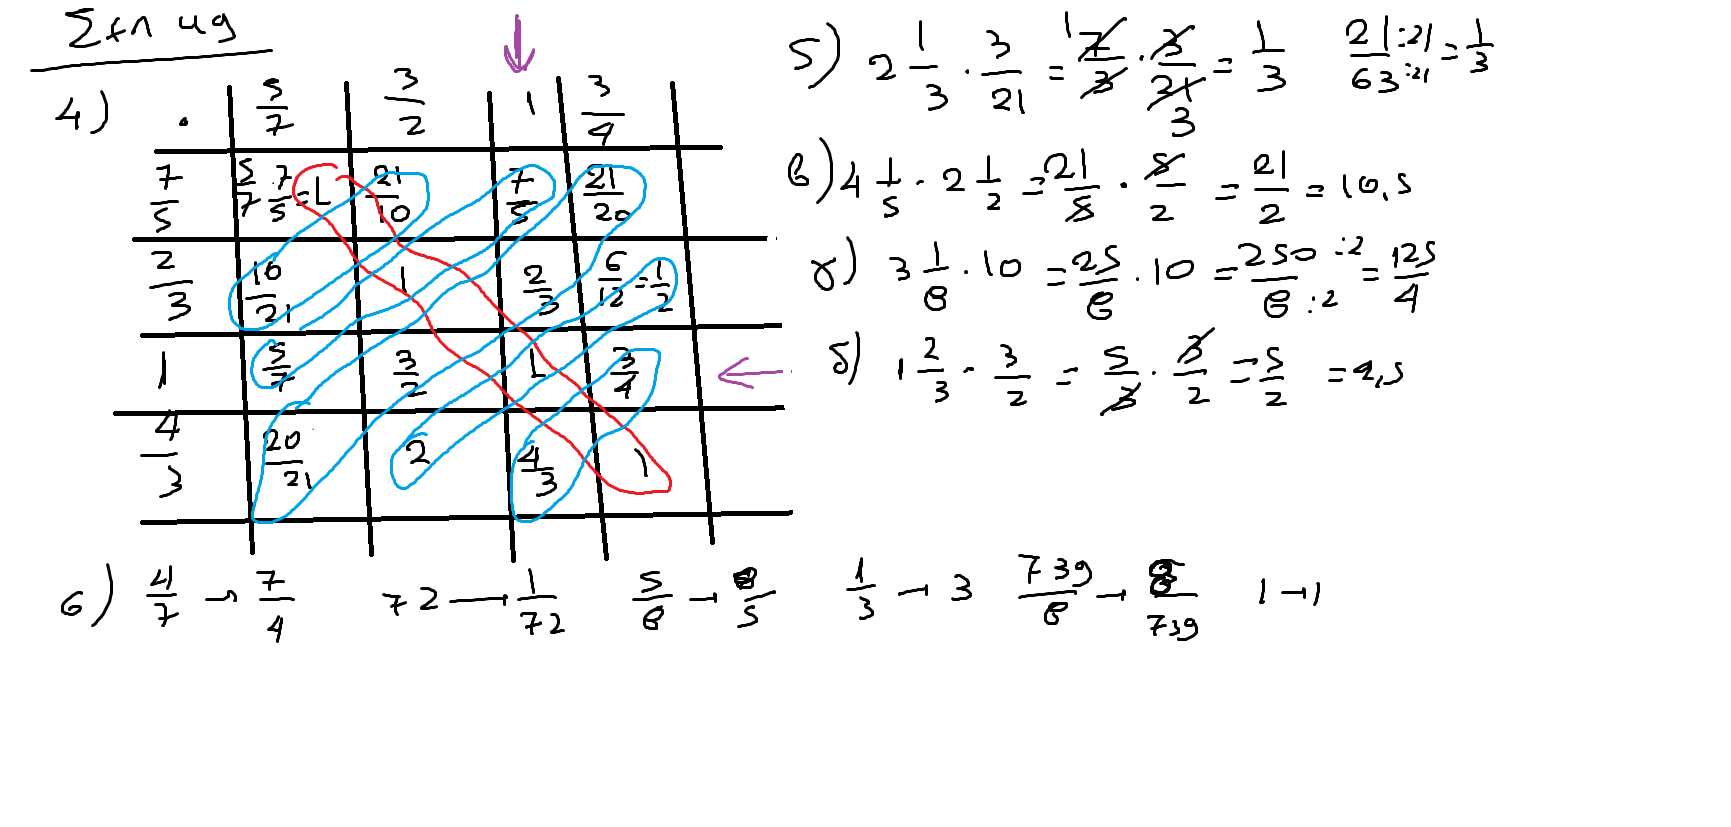 4)
· 5/7 3/2 1 3/4
7/5 5/7 · 7/5 = 1 21/10 7/5 21/20
2/3 10/21 1 2/3 6/12 = 1/2
1 5/7 3/2 1 3/4
4/3 20/21 2 4/3 1
5) 2 1/3 · 3/21 = 7/3 · 3/21 = 1/3 21:21/63:21 = 1/3
1 3
в) 4 1/5 · 2 1/2 = 21/5 · 5/2 = 21/2 = 10,5
г) 3 1/8 · 10 = 25/8 · 10 = 250:2/8:2 = 125/4
б) 1 2/3 · 3/2 = 5/3 · 3/2 = 5/2 = 2,5
6) 4/7 → 7/4 72 → 1/72 5/8 → 8/5 1/3 → 3 739/8 → 8/739 1 → 1